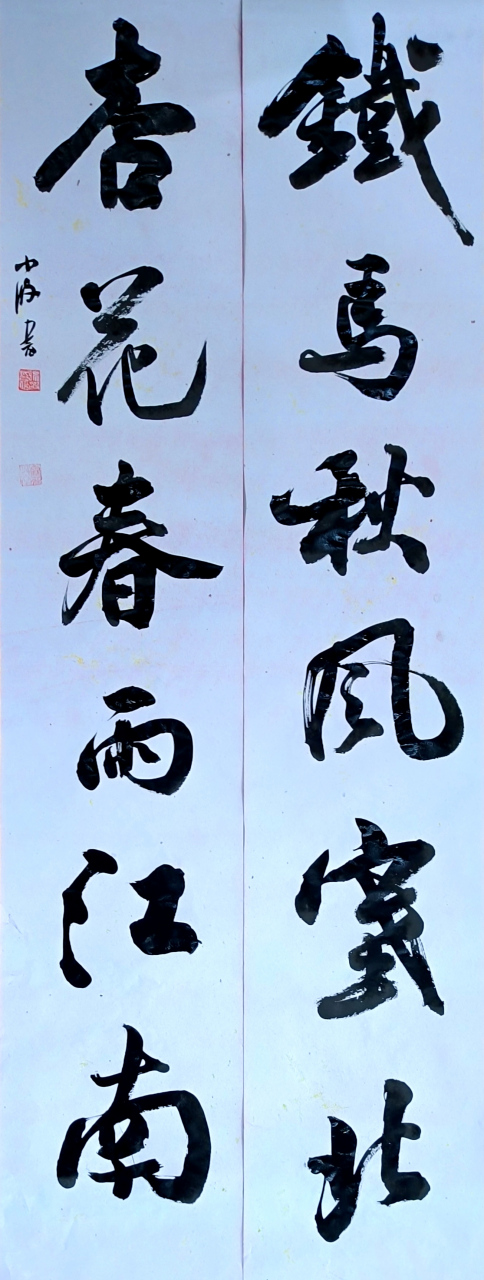 鐵馬秋風塞北
杏花春雨江南
小波書